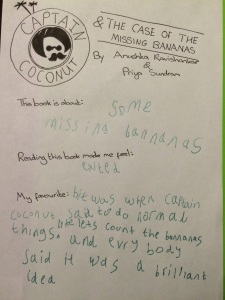 CAPTAIN
COCONUT
& THE CASE OF THE
MISSING BANANAS
By Anushka Ravishankar
&
Priya Sundram
This book is about:
some
missing bannanas
Reading this book made me feel:
exited
My favourite: bit was when captain
coconut said to do normal
things. lets count the bannanas
and evry body
said it was a brilliant
idea